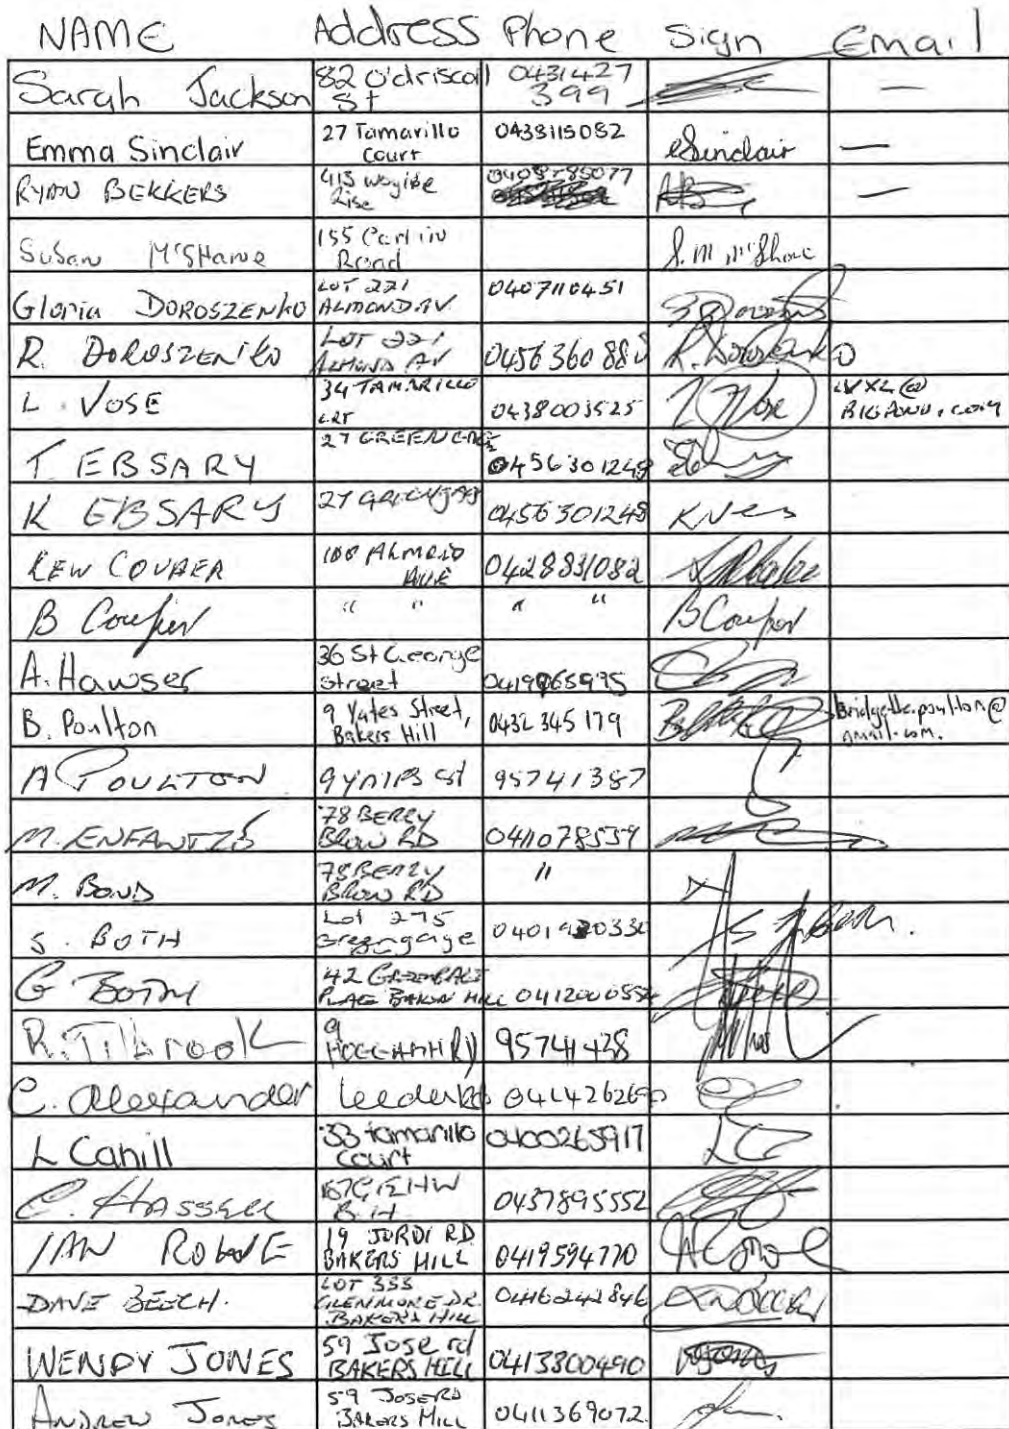 NAME Address Phone Sign Email
Sarah Jackson 82 O'driscoll St 0431427 399 —
Emma Sinclair 27 Tamarillo Court 0438115082 eSinclair —
RYAN BEKKERS 415 Rise 0408785077 —
Susan McSHane 155 Road
Gloria DOROSZENKO LOT 221 ALMOND AV. 0407110451
R. DOROSZENKO LOT 221 ALMOND AV 0456 360 880
L. VOSE 34 TAMARILLO CRT 0438003525 LVXL@ BIGPOND.COM
T EBSARY 27 GREENGAGE 0456 301248
K EBSARY 27 GREENGAGE 0456 301248
LEW COUPER 100 ALMOND AVE 0428831082
B Couper " " " " B Couper
A. Hawser 36 St George Street
B. Poulton 9 Yates Street, Bakers Hill 0432 345 179 Bridgette.poulton@ gmail.com.
A POULTON 9 YATES St 95741387
M. 78 BERRY BROW RD 0411078539
M. BOND 78 BERRY BROW RD "
S. BOTH Lot 275 greengage
G BOTH 42 PLACE BAKERS HILL
R. Tilbrook 9 RD 95741428
C. Alexander
L Cahill 33 tamarillo court 0400265917 LC
C. HASSELL 0437895552
IAN ROWE 19 JORDI RD BAKERS HILL 0419594770
DAVE BEECH. LOT 333 GLENMORE DR. BAKERS HILL 0416242846
WENDY JONES 59 Jose rd BAKERS HILL 0413800490
ANDREW JONES 59 JOSE RD BAKERS HILL 0411369072